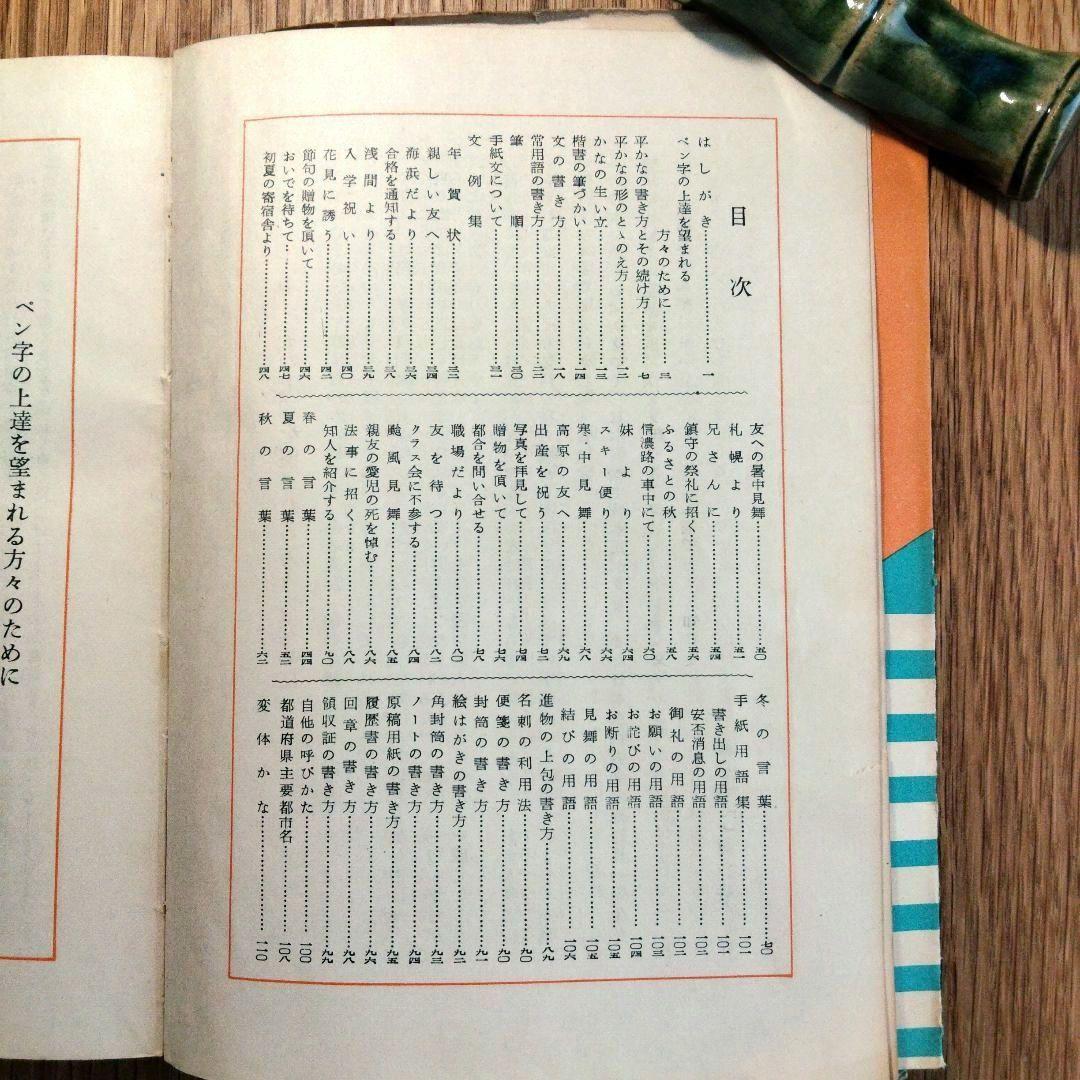 目次
はしがき……一
ペン字の上達を望まれる
方々のために……三
平かなの書き方とその続け方……七
平かなの形のとゝのえ方……一二
かなの生い立……一三
楷書の筆づかい……一四
文の書き方……一八
常用語の書き方……二二
筆順……三〇
手紙文について……三一
文例集
年賀状……三二
親しい友へ……三四
海浜だより……三六
合格を通知する……三八
浅間より……三九
入学祝い……四〇
花見に誘う……四二
節句の贈物を頂いて……四六
おいでを待ちて……四七
初夏の寄宿舎より……四八
友への暑中見舞……五〇
札幌より……五一
兄さんに……五四
鎮守の祭礼に招く……五六
ふるさとの秋……五八
信濃路の車中にて……六〇
妹より……六四
スキー便り……六六
寒・中見舞……六八
高原の友へ……六九
出産を祝う……七二
写真を拝見して……七四
贈物を頂いて……七六
都合を問い合せる……七八
職場だより……八〇
友を待つ……八二
クラス会に不参する……八四
颱風見舞……八五
親友の愛児の死を悼む……八六
法事に招く……八八
知人を紹介する……九〇
春の言葉……四四
夏の言葉……五二
秋の言葉……六二
冬の言葉……七〇
手紙用語集……一〇一
書き出しの用語……一〇一
安否消息の用語……一〇二
御礼の用語……一〇二
お願いの用語……一〇三
お詫びの用語……一〇四
お断りの用語……一〇五
見舞の用語……一〇五
結びの用語……一〇六
進物の上包の書き方……八九
名刺の利用法……九〇
便箋の書き方……九〇
封筒の書き方……九一
絵はがきの書き方……九二
角封筒の書き方……九三
ノートの書き方……九四
原稿用紙の書き方……九五
履歴書の書き方……九六
回章の書き方……九八
領収証の書き方……九九
自他の呼びかた……一〇〇
都道府県主要都市名……一〇八
変体かな……一一〇
ペン字の上達を望まれる方々のために